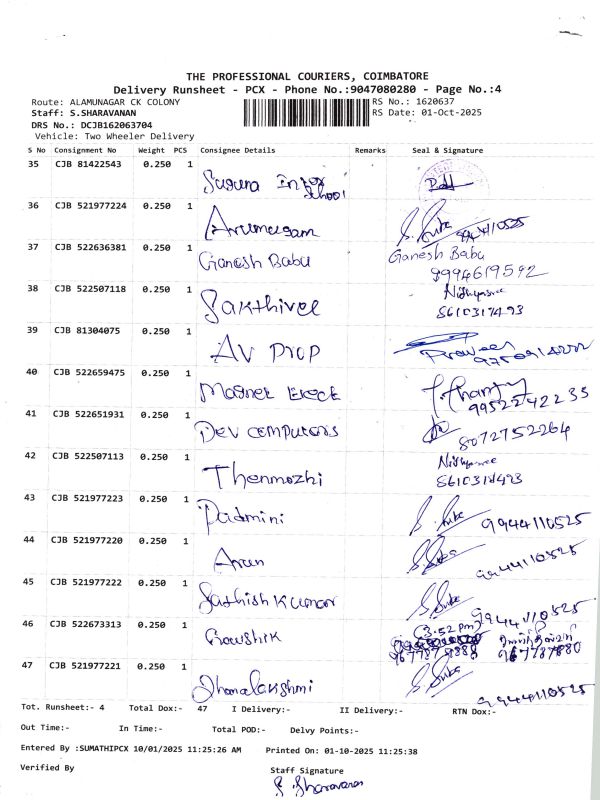 THE PROFESSIONAL COURIERS, COIMBATORE
Delivery Runsheet - PCX - Phone No.:9047080280 - Page No.:4
Route: ALAMUNAGAR CK COLONY RS No.: 1620637
Staff: S.SHARAVANAN RS Date: 01-Oct-2025
DRS No.: DCJB162063704
Vehicle: Two Wheeler Delivery
S No Consignment No Weight PCS Consignee Details Remarks Seal & Signature
35 CJB 81422543 0.250 1 Suguna Inter School
36 CJB 521977224 0.250 1 Arumugam S. Suba 9944110525
37 CJB 522636381 0.250 1 Ganesh Babu Ganesh Babu
9994619592
38 CJB 522507118 0.250 1 Sakthivel Nithyasree
8610317493
39 CJB 81304075 0.250 1 AV Prop Praveen
40 CJB 522659475 0.250 1 Magnet
9952242235
41 CJB 522651931 0.250 1 Dev computers
8072752264
42 CJB 522507113 0.250 1 Thenmozhi Nithyasree
8610317493
43 CJB 521977223 0.250 1 Padmini S. Suba 9944110525
44 CJB 521977220 0.250 1 Arun S. Suba 9944110525
45 CJB 521977222 0.250 1 Sathish Kumar S. Suba 9944110525
46 CJB 522673313 0.250 1 Gowshik (3.52 pm)
47 CJB 521977221 0.250 1 Dhanalakshmi S. Suba 9944110525
Tot. Runsheet:- 4 Total Dox:- 47 I Delivery:- II Delivery:- RTN Dox:-
Out Time:- In Time:- Total POD:- Delvy Points:-
Entered By :SUMATHIPCX 10/01/2025 11:25:26 AM Printed On: 01-10-2025 11:25:38
Verified By Staff Signature
S. Sharavanan